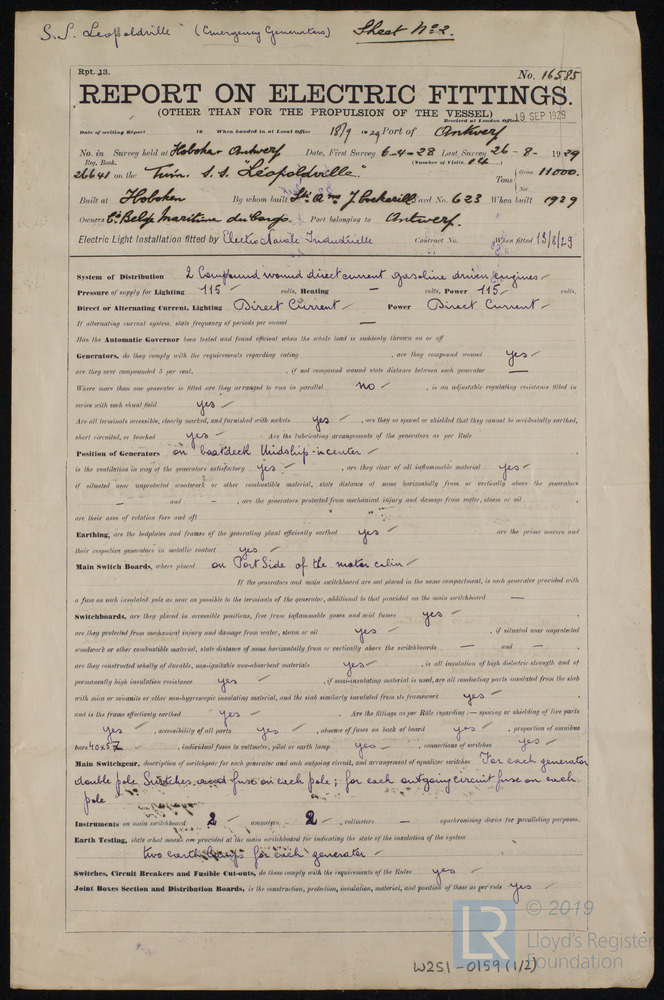 S.S. Leopoldville (Emergency Generators) Sheet No 2.
Rpt. 13. No. 16585
REPORT ON ELECTRIC FITTINGS.
(OTHER THAN FOR THE PROPULSION OF THE VESSEL)
Received at London Office 19 SEP 1929
Date of writing Report 19 When handed in at Local Office 18/9 1929 Port of Antwerp
No. in Survey held at Hoboken Antwerp Date, First Survey 6-4-28 Last Survey 26-8-1929
Reg. Book. (Number of Visits 14)
26641 on the Twin. S.S. "Léopoldville" Tons Gross 11000.
Net
Built at Hoboken By whom built J. Cockerill Yard No. 623 When built 1929
Owners Cie Belge Maritime du Congo. Port belonging to Antwerp.
Electric Light Installation fitted by Electro Navale Industrielle Contract No. When fitted 13/8/29
System of Distribution 2 Compound wound direct current gasoline driven engines
Pressure of supply for Lighting 115 volts, Heating — volts, Power 115 volts.
Direct or Alternating Current, Lighting Direct Current Power Direct Current
If alternating current system, state frequency of periods per second —
Has the Automatic Governor been tested and found efficient when the whole load is suddenly thrown on or off
Generators, do they comply with the requirements regarding rating , are they compound wound yes
are they over compounded 5 per cent. , if not compound wound state distance between each generator —
Where more than one generator is fitted are they arranged to run in parallel no , is an adjustable regulating resistance fitted in
series with each shunt field yes
Are all terminals accessible, clearly marked, and furnished with sockets yes , are they so spaced or shielded that they cannot be accidentally earthed,
short circuited, or touched yes Are the lubricating arrangements of the generators as per Rule
Position of Generators on boatdeck Midship-incenter
is the ventilation in way of the generators satisfactory yes , are they clear of all inflammable material yes
if situated near unprotected woodwork or other combustible material, state distance of same horizontally from or vertically above the generators
— and — , are the generators protected from mechanical injury and damage from water, steam or oil
are their axes of rotation fore and aft
Earthing, are the bedplates and frames of the generating plant efficiently earthed yes are the prime movers and
their respective generators in metallic contact yes
Main Switch Boards, where placed on Port Side of the motor cabin
If the generators and main switchboard are not placed in the same compartment, is each generator provided with
a fuse on each insulated pole as near as possible to the terminals of the generator, additional to that provided on the main switchboard —
Switchboards, are they placed in accessible positions, free from inflammable gases and acid fumes yes
are they protected from mechanical injury and damage from water, steam or oil yes , if situated near unprotected
woodwork or other combustible material, state distance of same horizontally from or vertically above the switchboards — and —
are they constructed wholly of durable, non-ignitable non-absorbent materials yes , is all insulation of high dielectric strength and of
permanently high insulation resistance yes , if semi-insulating material is used, are all conducting parts insulated from the slab
with mica or micanite or other non-hygroscopic insulating material, and the slab similarly insulated from its framework yes
and is the frame effectively earthed yes Are the fittings as per Rule regarding :— spacing or shielding of live parts
yes , accessibility of all parts yes , absence of fuses on back of board yes , proportion of omnibus
bars 40x5 , individual fuses to voltmeter, pilot or earth lamp yes , connections of switches yes
Main Switchgear, description of switchgear for each generator and each outgoing circuit, and arrangement of equalizer switches For each generator
double pole Switches and fuse on each pole; for each outgoing circuit fuse on each
pole
Instruments on main switchboard 2 ammeters 2 voltmeters — synchronising device for paralleling purposes.
Earth Testing, state what means are provided at the main switchboard for indicating the state of the insulation of the system
two earth lamps for each generator
Switches, Circuit Breakers and Fusible Cut-outs, do these comply with the requirements of the Rules yes
Joint Boxes Section and Distribution Boards, is the construction, protection, insulation, material, and position of these as per rule yes
© 2019
LR Lloyd's Register
Foundation
W251-0159 (1/2)